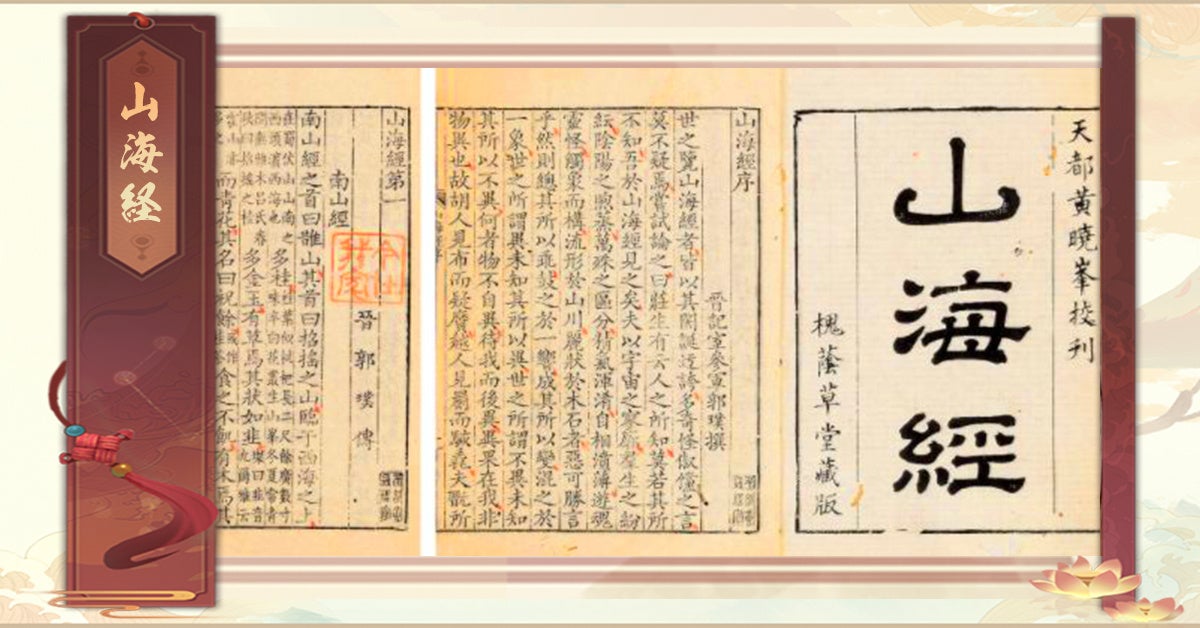 山海経
天都黄曉峯校刊
山海經
槐蔭草堂藏版
山海經序
晉記室參軍郭璞撰
世之覽山海經者皆以其閎誕迂誇多奇怪俶儻之言
莫不疑焉嘗試論之曰莊生有云人之所知莫若其所
不知吾於山海經見之矣夫以宇宙之寥廓羣生之紛
紜陰陽之煦蒸萬殊之區分精氣渾淆自相濆薄遊魂
靈怪觸象而構流形於山川麗狀於木石者惡可勝言
乎然則總其所以乖鼓之於一響成其所以變混之於
一象世之所謂異未知其所以異世之所謂不異未知
其所以不異何者物不自異待我而後異異果在我非
物異也故胡人見布而疑黂越人見罽而駭毳夫翫所
山海經第一
晉 郭璞傳
南山經
南山經之首曰䧿山其首曰招搖之山臨于西海之上
在蜀伏山山南之西頭濱西海也多桂桂葉似枇杷長二尺餘廣數寸味辛白花叢生山峯冬夏常青
間無雜物呂氏春秋曰招搖之桂多金玉有草焉其狀如韭
而青花其名曰祝餘食之不飢有木焉其